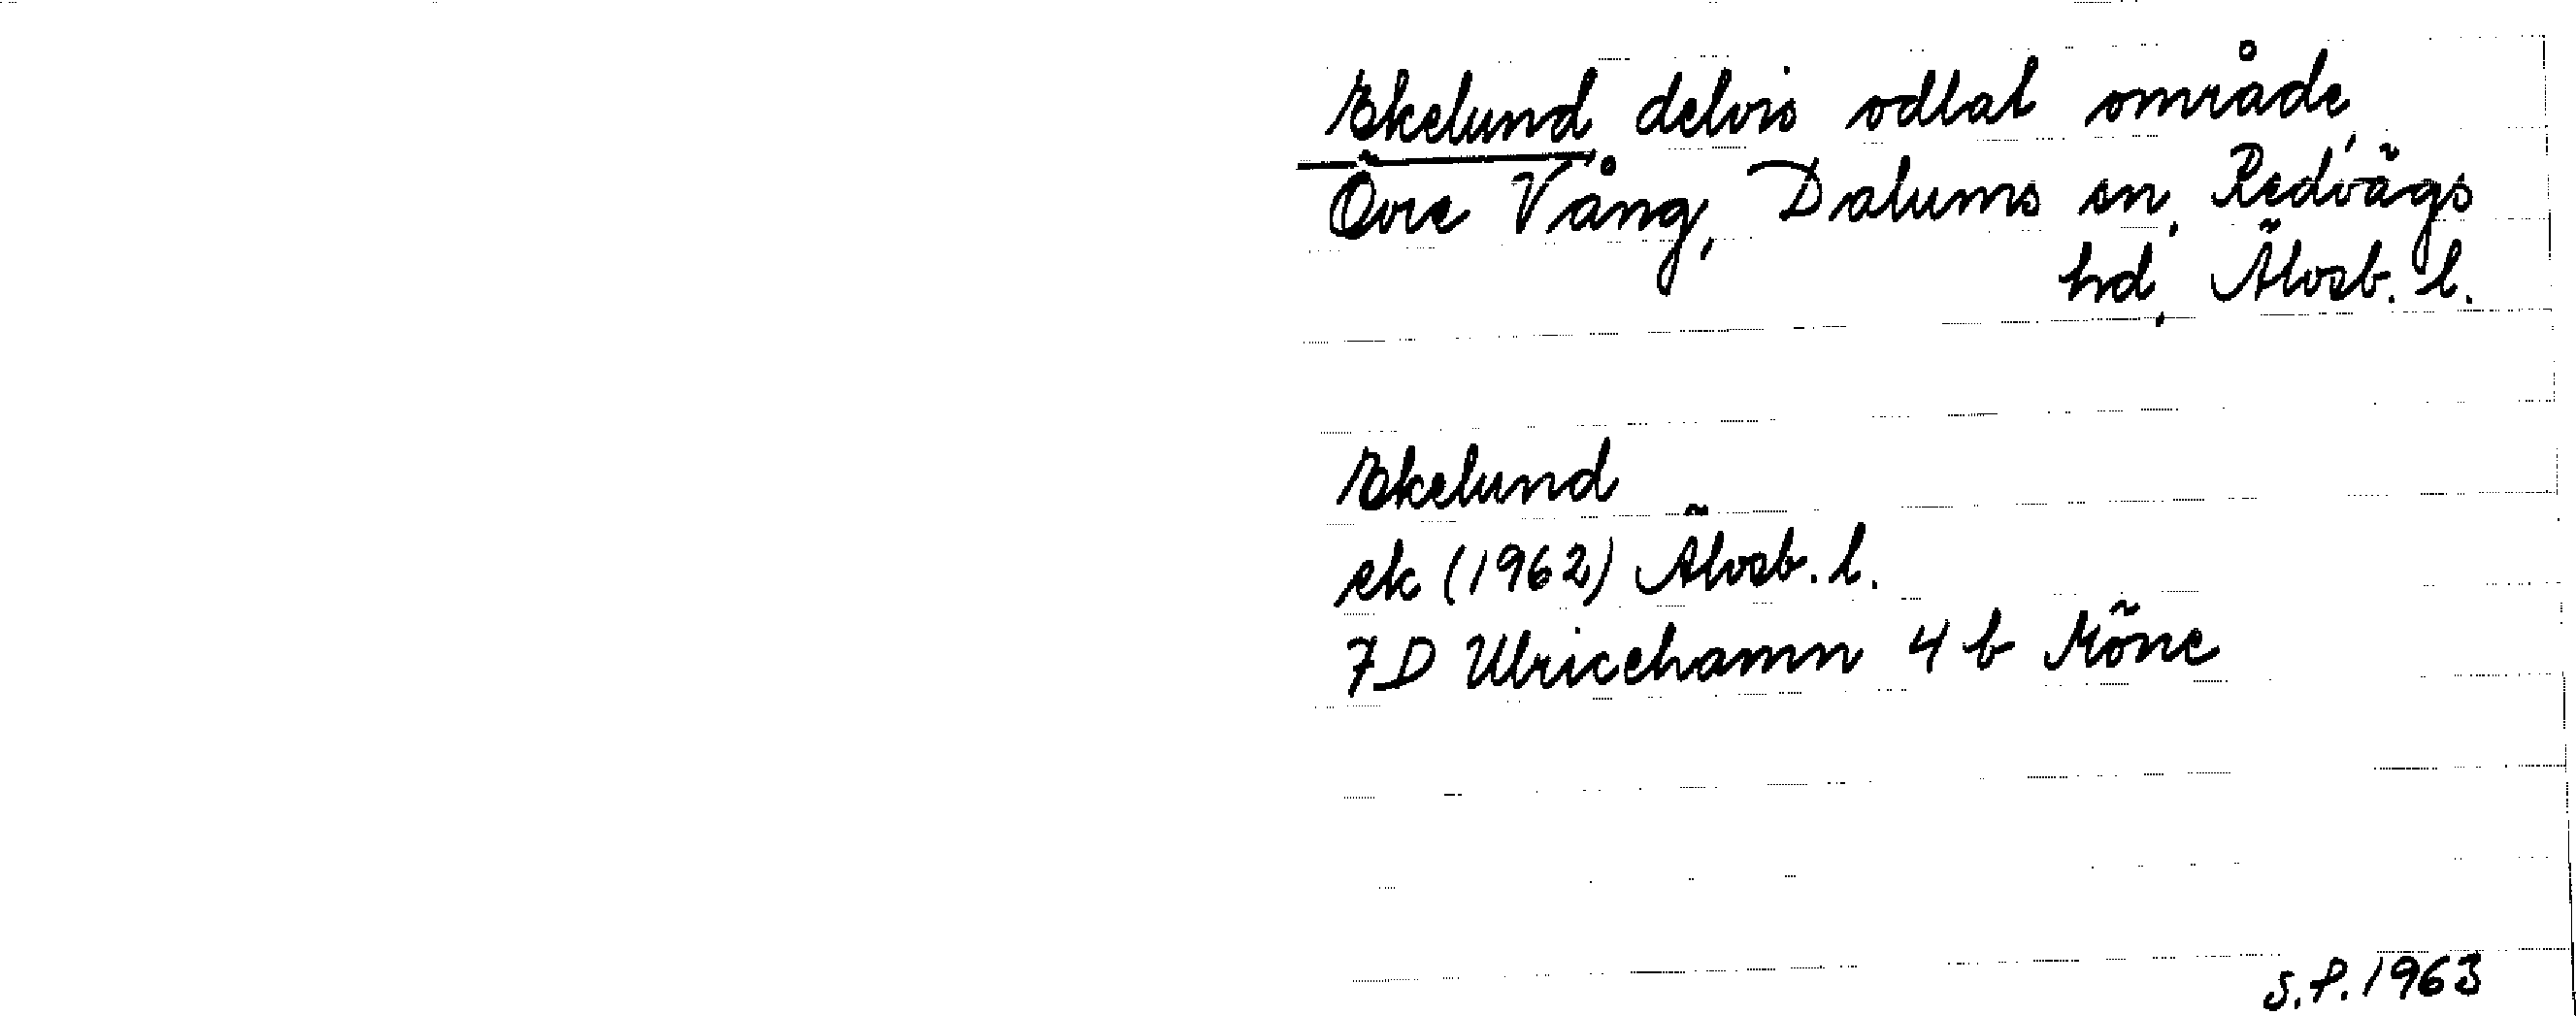 Ekelund delvis odlat område,
Övre Vång, Dalums sn, Redvägs
hd, Älvsb. l.
Ekelund
ek (1962) Älvsb. l.
7D Ulricehamn 4 b Möne
S.P. 1963